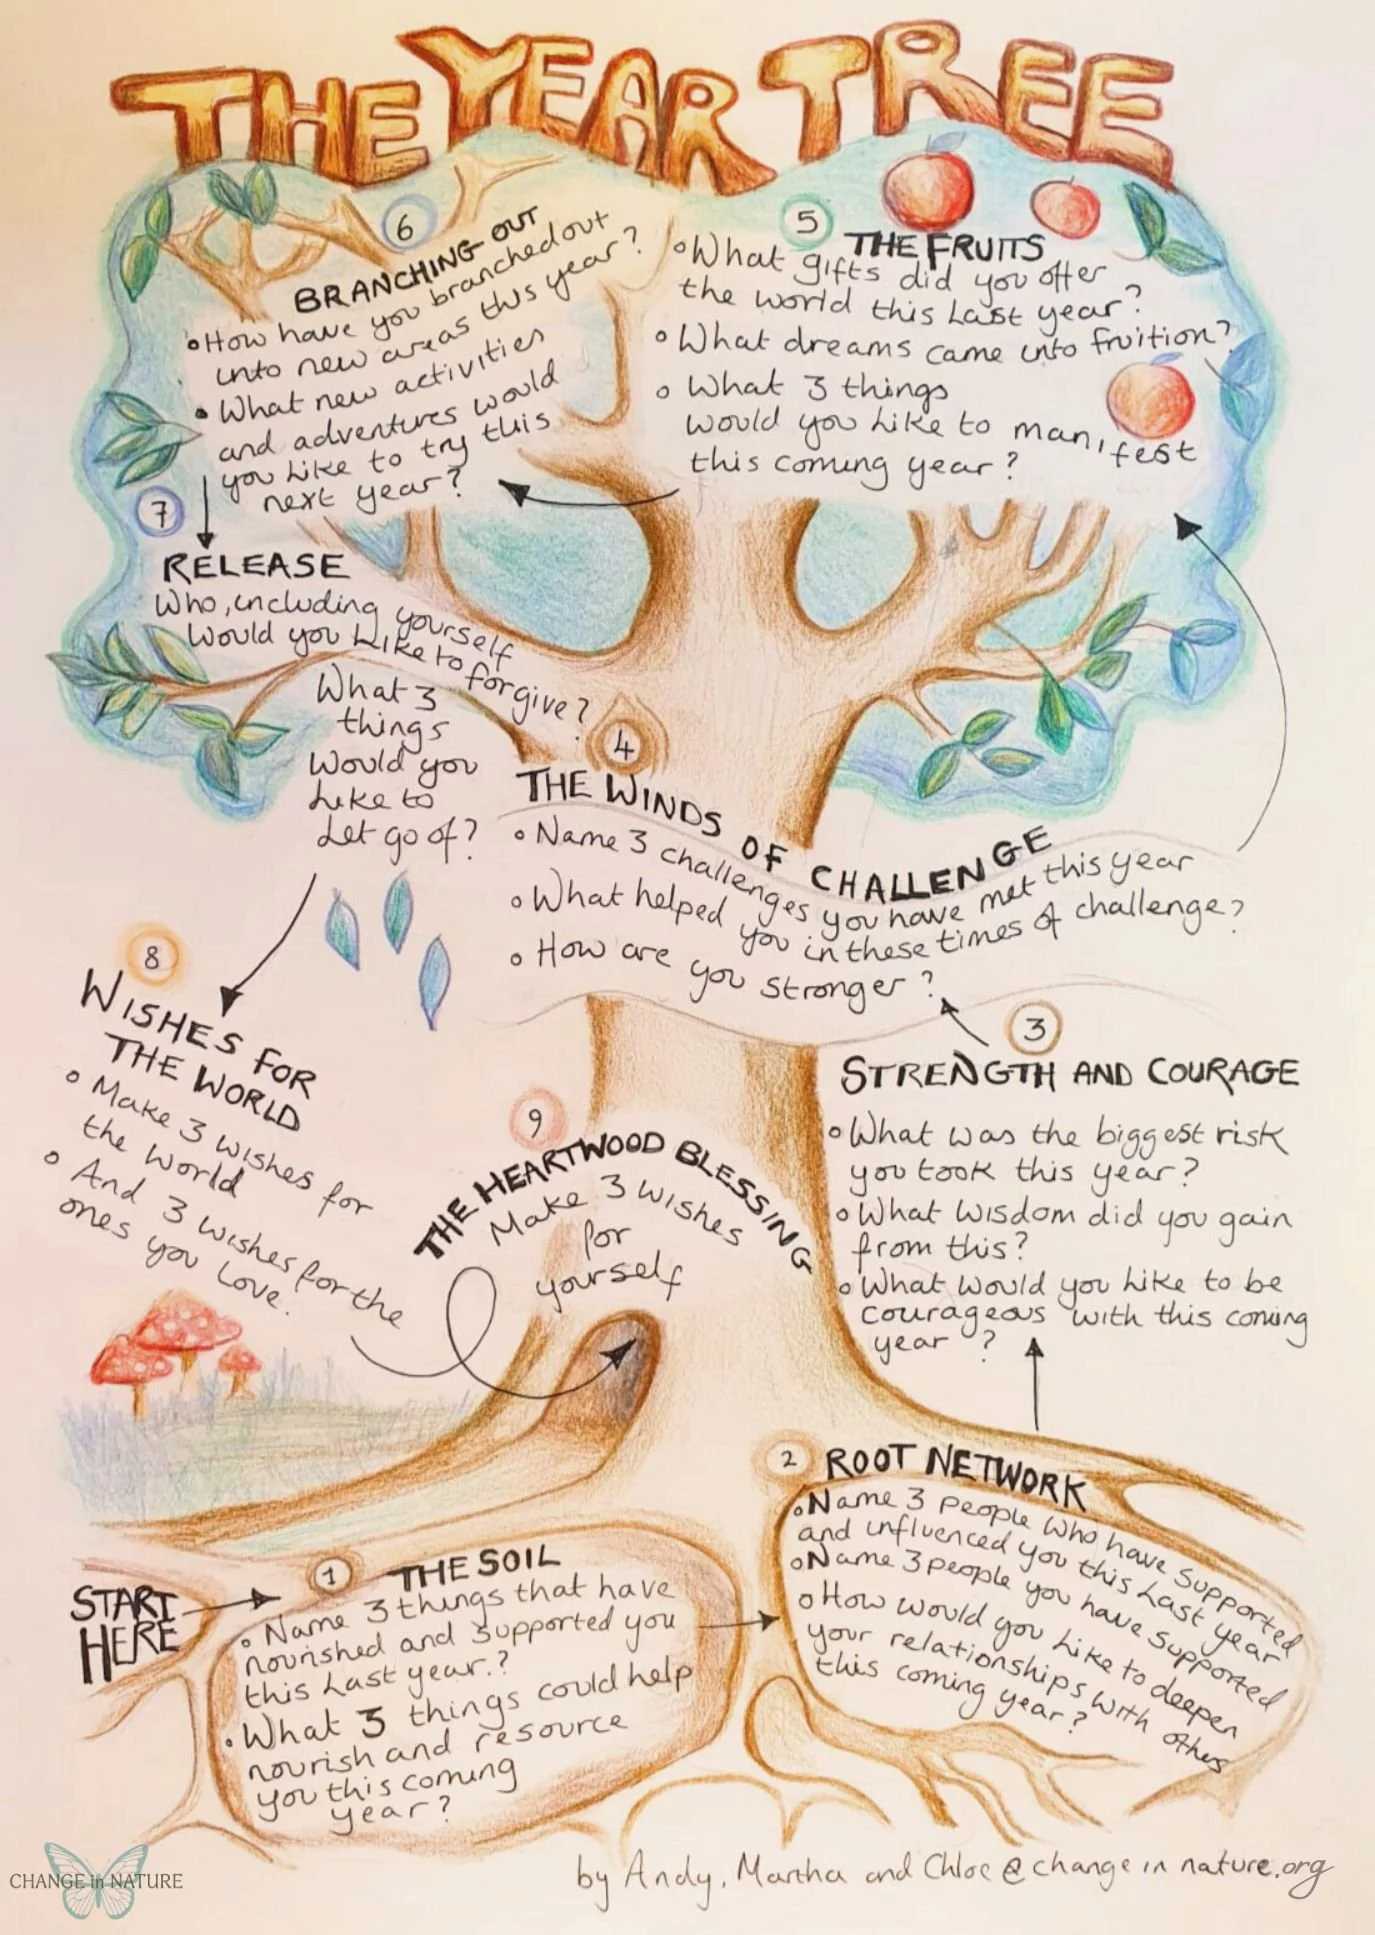 THE YEAR TREE
START
HERE
1
THE SOIL
• Name 3 things that have
nourished and supported you
this last year.?
• What 3 things could help
nourish and resource
you this coming
year?
2
ROOT NETWORK
• Name 3 people who have supported
and influenced you this last year
• Name 3 people you have supported
• How would you like to deepen
your relationships with others
this coming year?
3
STRENGTH AND COURAGE
• What was the biggest risk
you took this year?
• What wisdom did you gain
from this?
• What would you like to be
courageous with this coming
year?
4
THE WINDS OF CHALLENGE
• Name 3 challenges you have met this year
• What helped you in these times of challenge?
• How are you stronger?
5
THE FRUITS
• What gifts did you offer
the world this last year?
• What dreams came into fruition?
• What 3 things
would you like to manifest
this coming year?
6
BRANCHING OUT
• How have you branched out
into new areas this year?
• What new activities
and adventures would
you like to try this
next year?
7
RELEASE
Who, including yourself
would you like to forgive?
What 3
things
would you
like to
let go of?
8
WISHES FOR
THE WORLD
• Make 3 wishes for
the world
• And 3 wishes for the
ones you love.
9
THE HEARTWOOD BLESSING
Make 3 wishes
for
yourself
CHANGE in NATURE
by Andy, Martha and Chloe @ change in nature.org